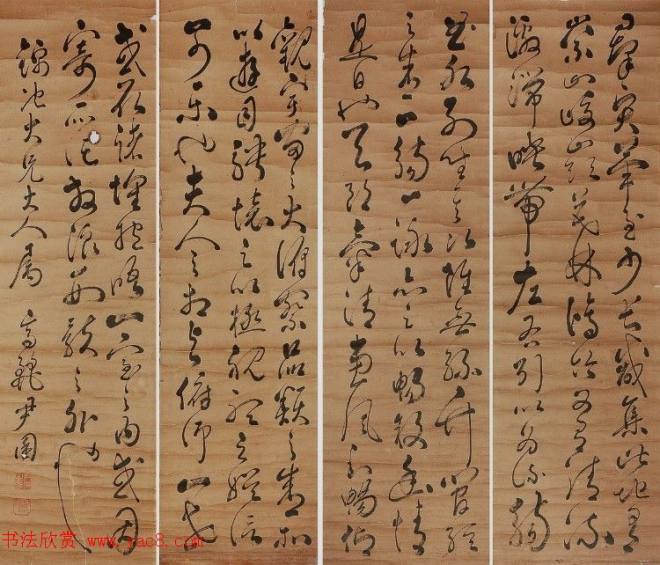 羣賢畢至少長咸集此地有
崇山峻嶺茂林脩竹又有清流
激湍暎帶左右引以為流觴
曲水列坐其次雖無絲竹管絃
之盛一觴一詠亦足以暢敘幽情
是日也天朗氣清惠風和暢仰
觀宇宙之大俯察品類之盛所
以遊目騁懷足以極視聽之娛信
可樂也夫人之相與俯仰一世
或取諸懷抱悟言一室之內或因
寄所託放浪形骸之外
大兄大人属
书法欣赏 www.yac8.com